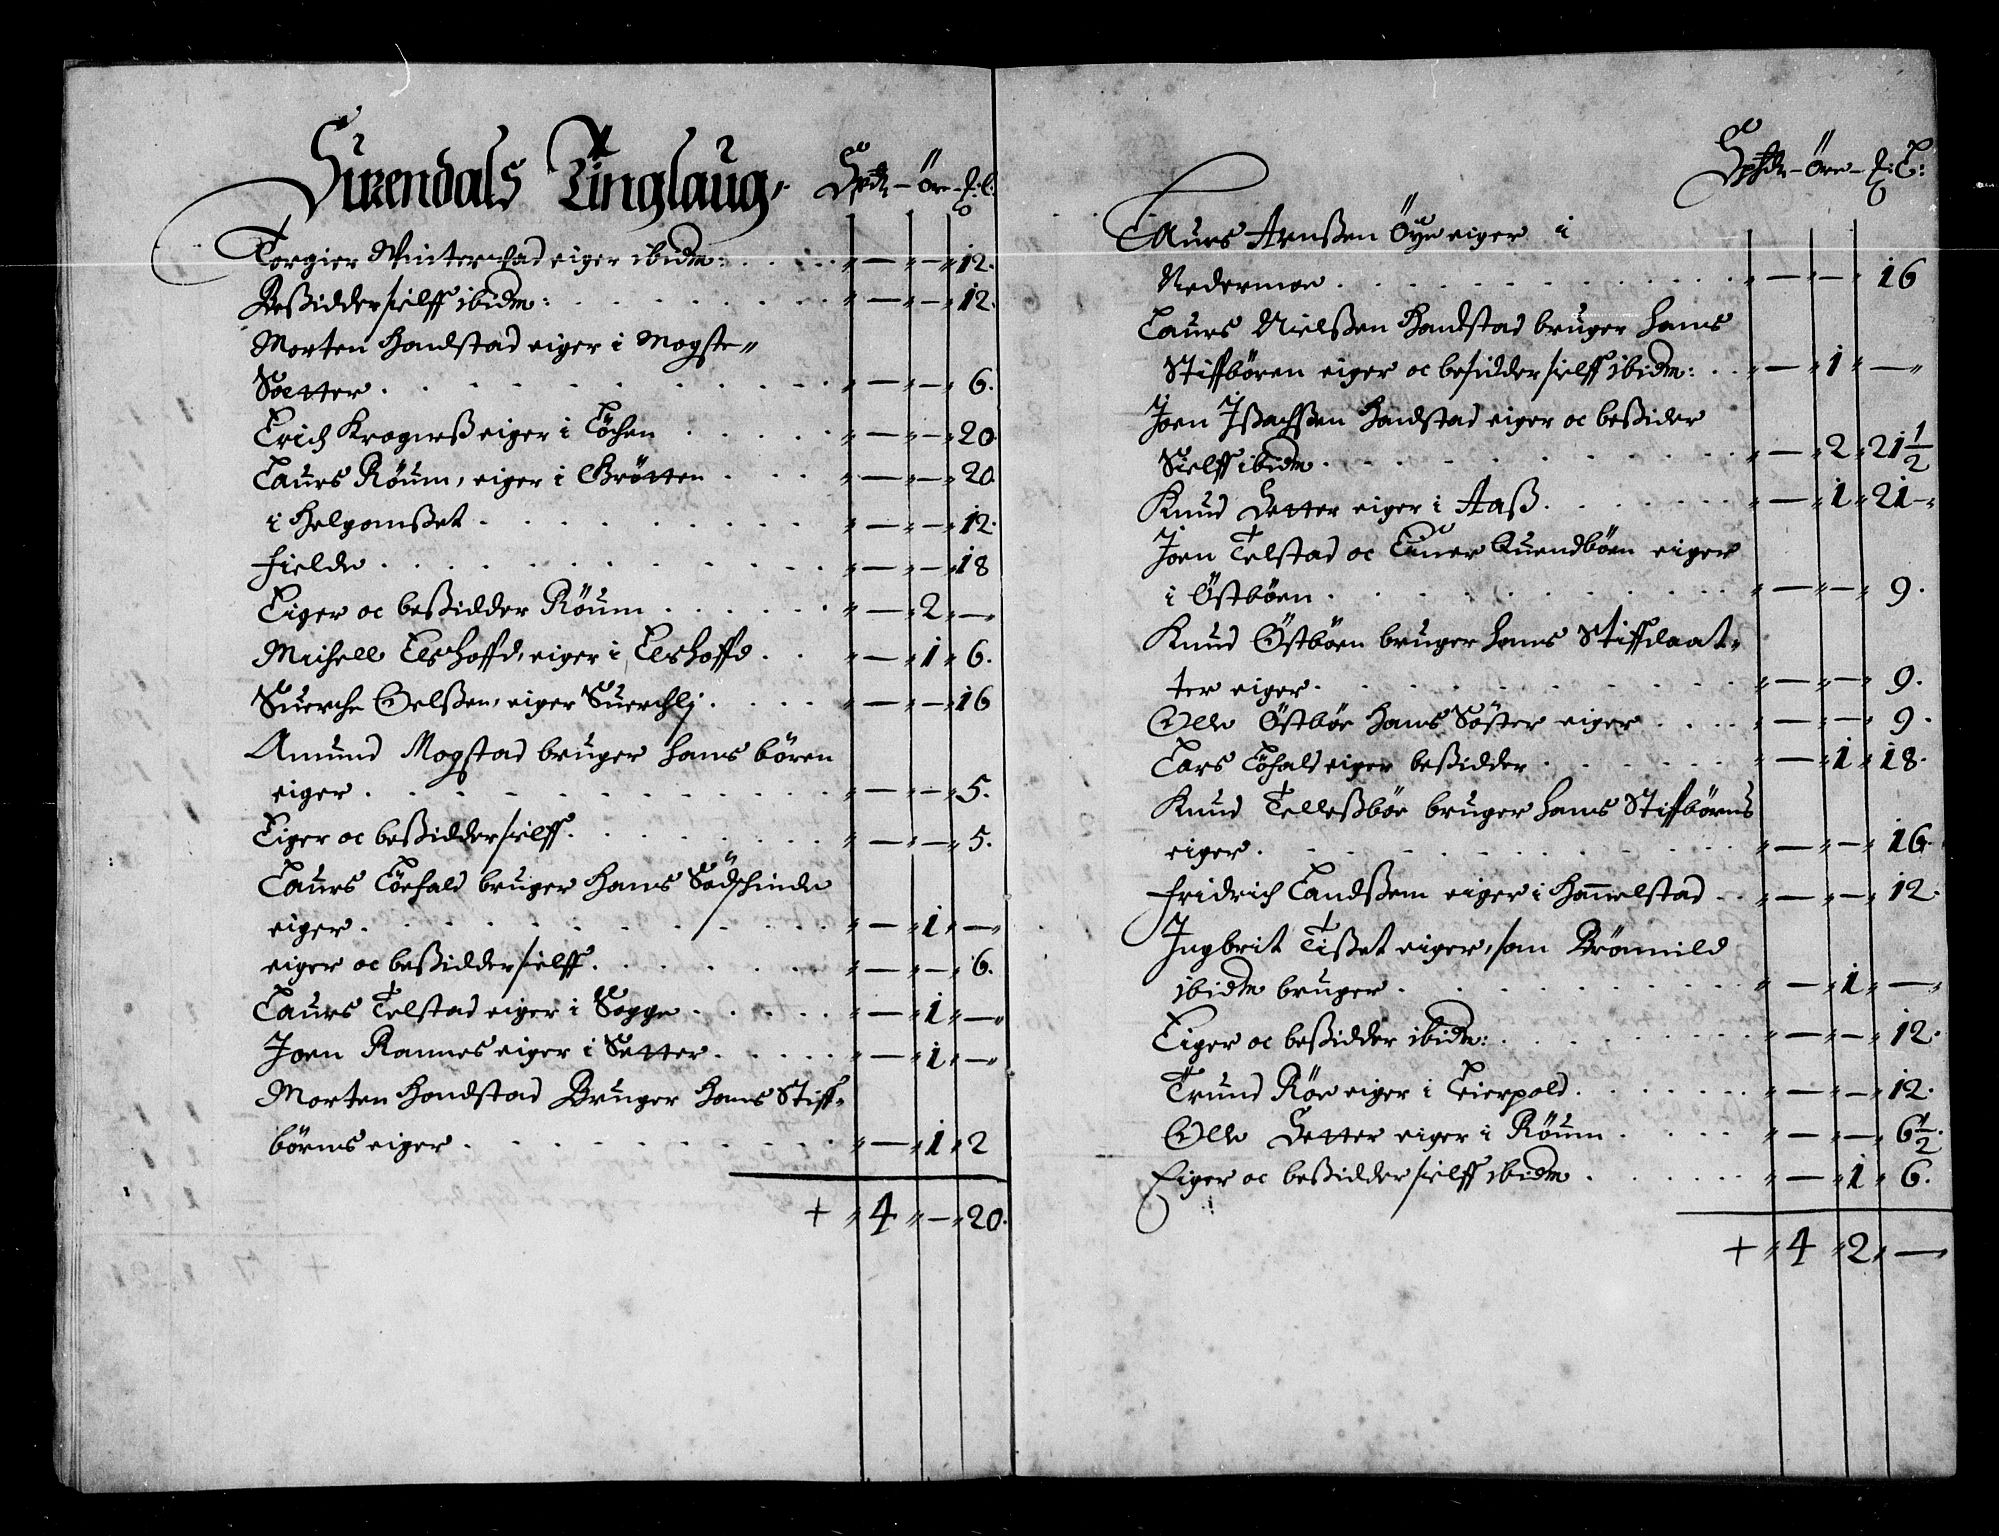 Surendals Tinglaug, Spdn – Öre – X: C:
Torgier Winterstad eiger ibidm: „ — „ — „ 12.
Beßidder sielff ibidm: „ — „ — „ 12.
Morten Handstad eiger i Mogste„
Sætter „ — „ — „ 6.
Erich Kragneß eiger i Töchen „ — „ — „ 20
Laurs Röum, eiger i Brötten „ — „ — „ 20
i Helgomßet „ — „ — „ 12.
Fielde „ — „ — „ 18
Eiger oc beßidder Röum „ — „ 2 „ —
Michell Elshoffd, eiger i Elshoffd „ — „ 1 „ 6.
Suerche Oelßen, eiger Suerchlj „ — „ — „ 16
Amund Mogstad bruger hans bören
eiger „ — „ — „ 5.
Eiger oc beßidder sielff „ — „ — „ 5.
Laurs Töefald bruger Hans Södschinde
eiger „ — „ 1 „ —
eiger oc beßidder sielff „ — „ — „ 6.
Laurs Telstad eiger i Sogge „ — „ 1 „ —
Joen Rannes eiger i Setter „ — „ 1 „ —
Morten Handstad Bruger Hans Stiff„
börns eiger „ — „ 1 „ 2
+ „ 4 „ — „ 20.
Spdn – Öre – X: C:
Laurs Arnßen Öye eiger i
Nedermoe „ — „ — „ 16
Laurs Nielßen Handstad bruger hans
Stiffbören eiger oc besidder sielff ibidm: „ — „ 1 „ —
Joen Jßachßen Handstad eiger oc beßider
Sielff ibidm „ — „ 2 „ 21 1/2
Knud Setter eiger i Aaß „ — „ 1 „ 21 –
Joen Telstad oc Einer Quendböen eiger
i Östböen „ — „ — „ 9.
Knud Östböen bruger hans Stiffdaat„
ter eiger „ — „ — „ 9.
Olle Östböe Hans Söster eiger „ — „ — „ 9.
Lars Töfald eiger beßidder „ — „ 1 „ 18.
Knud Telleßböe bruger hans Stiffbörns
eiger „ — „ — „ 16.
Fridrich Landßem eiger i Hammelstad „ — „ — „ 12.
Ingbrit Tißet eiger, som Brönnild
ibidm bruger „ — „ 1 „ —
Eiger oc beßidder ibidm: „ — „ — „ 12.
Trund Röe eiger i Leerpold „ — „ — „ 12.
Olle Setter eiger i Röum „ — „ — „ 6 1/2.
Eiger oc beßidder sielff ibidm „ — „ 1 „ 6.
+ „ 4 „ 2 „ —